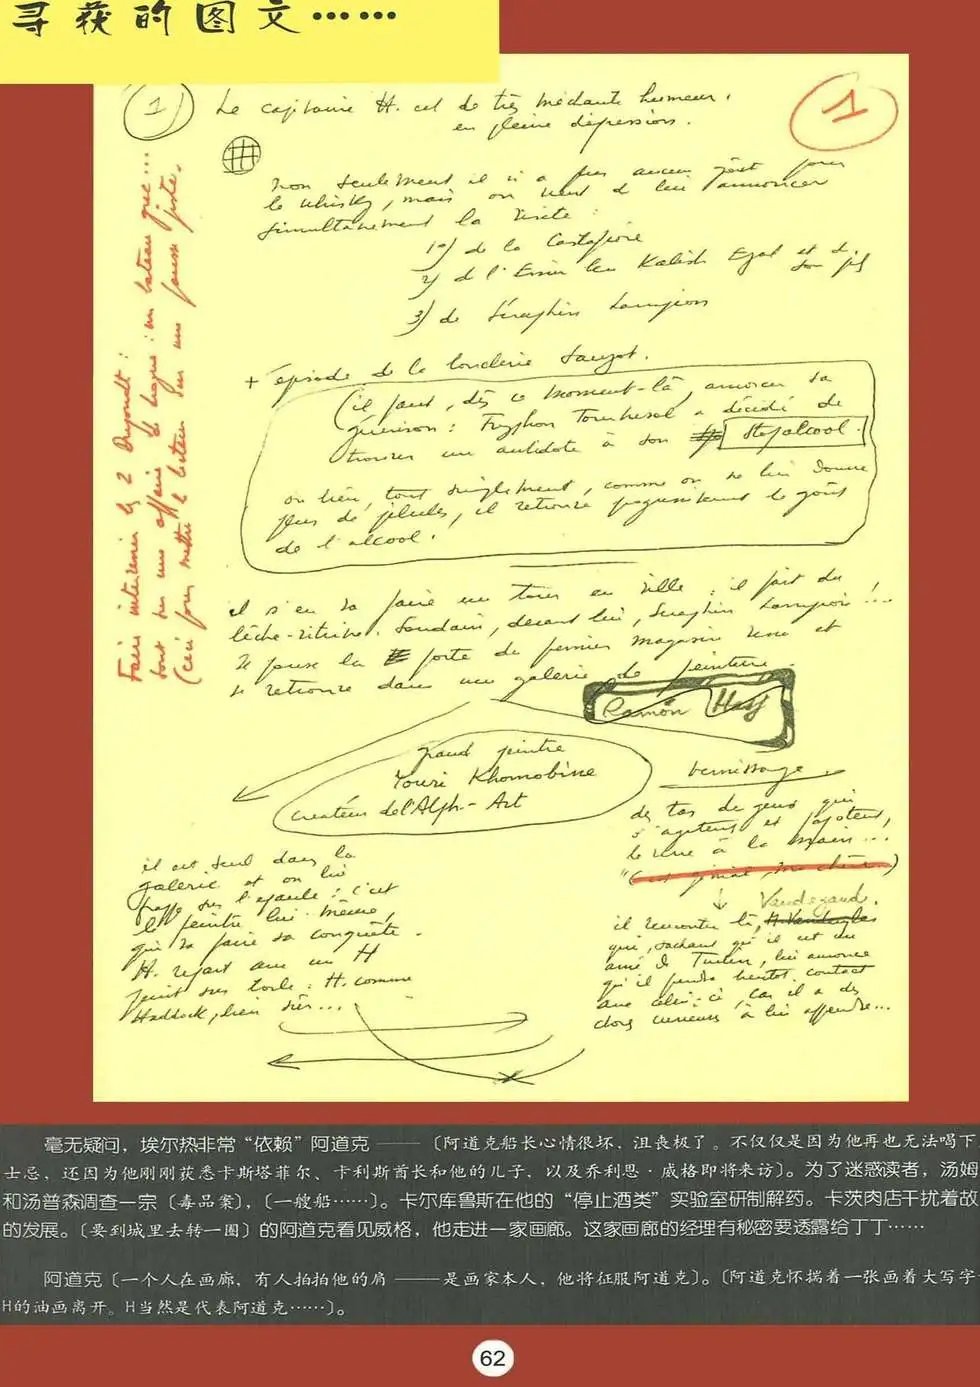 寻获的图文……
1
Le capitaine H. est de très méchante humeur,
en pleine dépression.
1
non seulement il n'a plus aucun goût pour
le whisky, mais on vient de lui annoncer
simultanément la visite :
1°) de la Castafiore
2) de l'Emir Ben Kalish Ezab et de
son fils
3) de Séraphin Lampion
+ épisode de la boucherie Sanzot.
(il faut, dès ce moment-là, amorcer sa
guérison : Tryphon Tournesol a décidé de
trouver un antidote à son Stopalcool.
ou bien, tout simplement, comme on ne lui donne
plus de pilules, il retrouve progressivement le goût
de l'alcool.
il s'en va faire un tour en ville : il fait du
lèche-vitrine. Soudain, devant lui, Séraphin Lampion !...
Il pousse la porte du premier magasin venu et
se retrouve dans une galerie de peinture.
Ramon Hasj
grand peintre
Youri Khomobine
créateur de l'Alph-Art
vernissage
des tas de gens qui
s'agitent et papotent,
le verre à la main...
"C'est génial, ma chère")
Vandegande.
il rencontre là,
qui, sachant qu'il est un
ami de Tintin, lui annonce
qu'il prendra bientôt contact
avec celui-ci, car il a des
choses curieuses à lui apprendre...
il est seul dans la
galerie et on lui
frappe sur l'épaule : c'est
le peintre lui-même,
qui va faire sa conquête.
H. repart avec un H
peint sur toile : H. comme
Haddock, bien sûr...
Faire intervenir les 2 Dupondt :
sont sur une affaire de drogue : un bateau grec...
(ceci pour mettre le lecteur sur une fausse piste.
毫无疑问，埃尔热非常“依赖”阿道克 ——〔阿道克船长心情很坏，沮丧极了。不仅仅是因为他再也无法喝下
士忌，还因为他刚刚获悉卡斯塔菲尔、卡利斯酋长和他的儿子，以及乔利恩·威格即将来访〕。为了迷惑读者，汤姆
和汤普森调查一宗〔毒品案〕，〔一艘船……〕。卡尔库鲁斯在他的“停止酒类”实验室研制解药。卡茨肉店干扰着故
的发展。〔要到城里去转一圈〕的阿道克看见威格，他走进一家画廊。这家画廊的经理有秘密要透露给丁丁……
阿道克〔一个人在画廊，有人拍拍他的肩 ——是画家本人，他将征服阿道克〕。〔阿道克怀揣着一张画着大写字
H的油画离开。H当然是代表阿道克……〕。
62